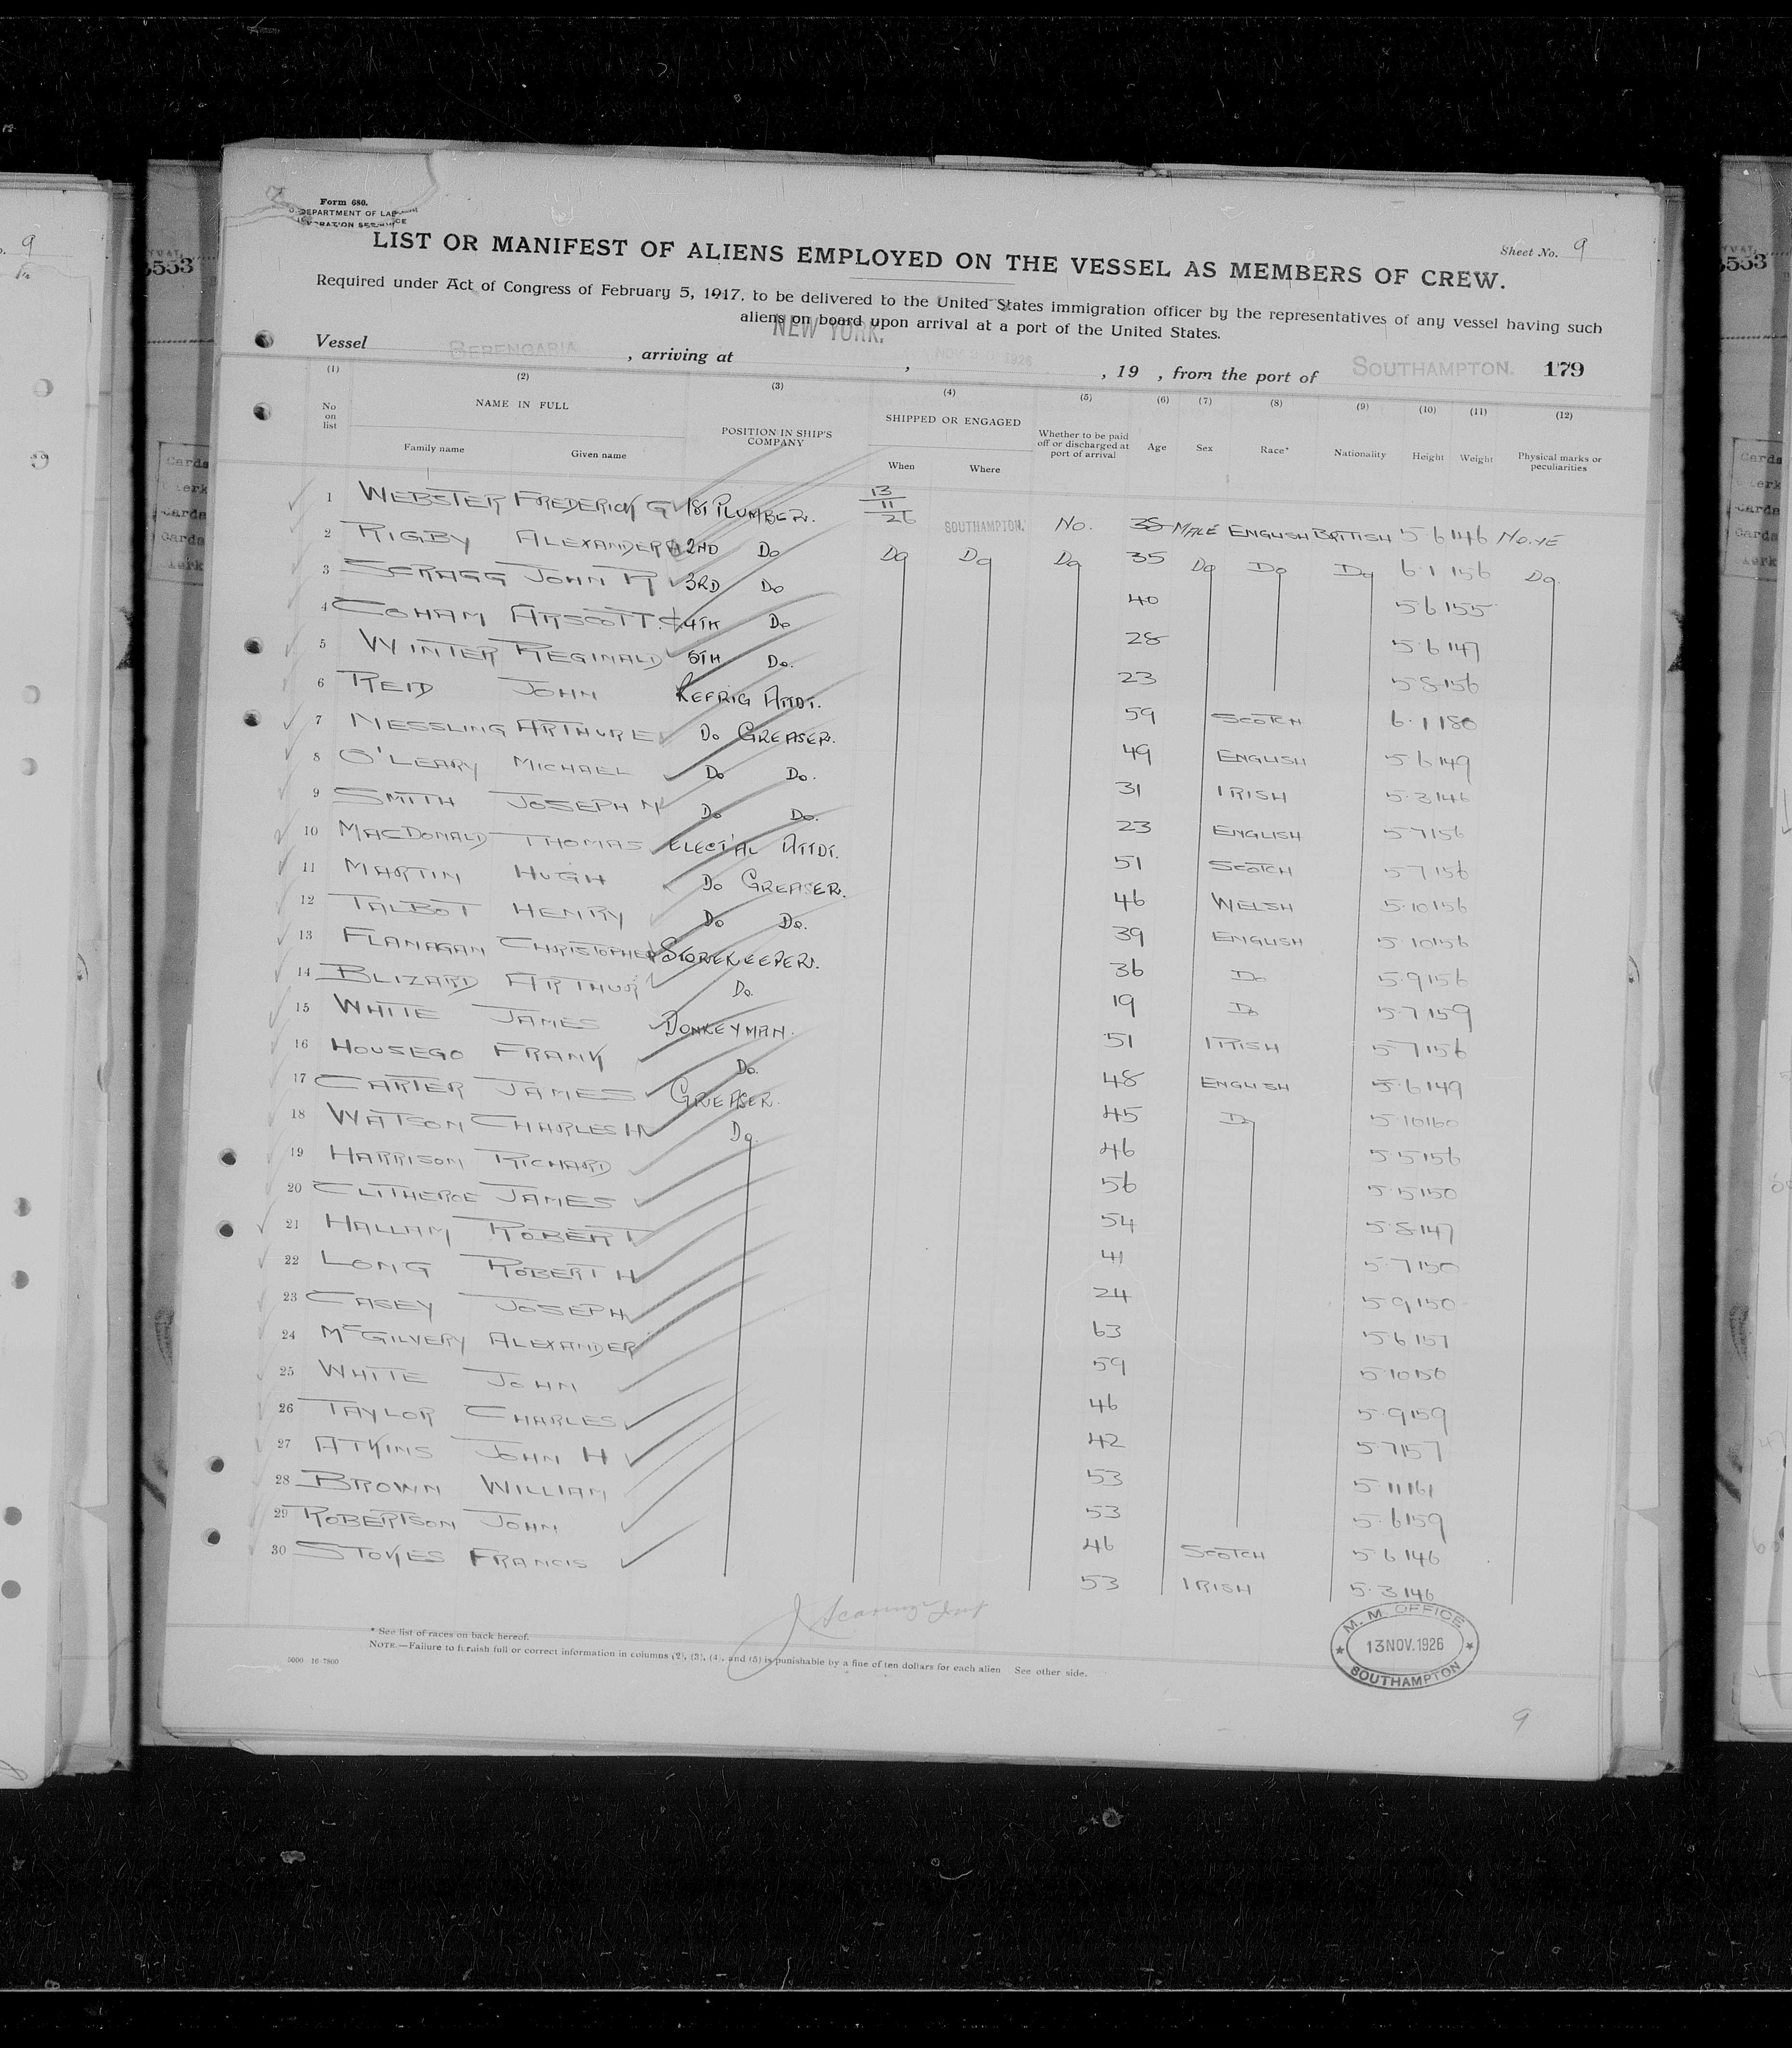 Form 680.
DEPARTMENT OF LABOR
Sheet No. 9
LIST OR MANIFEST OF ALIENS EMPLOYED ON THE VESSEL AS MEMBERS OF CREW.
Required under Act of Congress of February 5, 1917, to be delivered to the United States immigration officer by the representatives of any vessel having such
aliens on board upon arrival at a port of the United States.
Vessel BERENGARIA, arriving at NEW YORK., NOV 1926, 19 , from the port of SOUTHAMPTON. 179
(1) (2) (3) (4) (5) (6) (7) (8) (9) (10) (11) (12)
No on list NAME IN FULL Family name Given name POSITION IN SHIP'S COMPANY SHIPPED OR ENGAGED When Where Whether to be paid off or discharged at port of arrival Age Sex Race* Nationality Height Weight Physical marks or peculiarities
1 WEBSTER FREDERICK G 1ST PLUMBER. 13/11/26 SOUTHAMPTON. NO. 38 MALE ENGLISH BRITISH 5 6 146 NONE
2 RIGBY ALEXANDER 2ND DO DO DO DO 35 DO DO DO 6.1 156 DO
3 SCRAGG JOHN R 3RD DO 40 5 6 155
4 COHAM ARSCOTT. C 4TH DO 28 5.6 147
5 WINTER REGINALD 5TH DO. 23 5.8 156
6 REID JOHN REFRIG ATTDT. 59 SCOTCH 6.1 180
7 NESSLING ARTHUR E DO GREASER. 49 ENGLISH 5 6 149
8 O'LEARY MICHAEL DO DO. 31 IRISH 5.3 146
9 SMITH JOSEPH M DO DO. 23 ENGLISH 5 7 156
10 MACDONALD THOMAS ELECT'AL ATTDT. 51 SCOTCH 5 7 156
11 MARTIN HUGH DO GREASER. 46 WELSH 5.10 156
12 TALBOT HENRY DO DO. 39 ENGLISH 5.10 156
13 FLANAGAN CHRISTOPHER STOREKEEPER. 36 DO 5.9 156
14 BLIZARD ARTHUR DO 19 DO 5.7 159
15 WHITE JAMES DONKEYMAN. 51 IRISH 5.7 156
16 HOUSEGO FRANK DO. 48 ENGLISH 5.6 149
17 CARTER JAMES GREASER. 45 DO 5.10 160
18 WATSON CHARLES H DO. 46 5.5 156
19 HARRISON RICHARD 56 5.5 150
20 CLITHEROE JAMES 54 5.8 147
21 HALLAM ROBERT 41 5.7 150
22 LONG ROBERT H 24 5.9 150
23 CASEY JOSEPH 63 5.6 157
24 McGILVERY ALEXANDER 59 5.10 156
25 WHITE JOHN 46 5.9 159
26 TAYLOR CHARLES 42 5.7 157
27 ATKINS JOHN H 53 5.11 161
28 BROWN WILLIAM 53 5.6 159
29 ROBERTSON JOHN 46 SCOTCH 5 6 146
30 STOKES FRANCIS 53 IRISH 5.3 146
* See list of races on back hereof.
NOTE.—Failure to furnish full or correct information in columns (2), (3), (4), and (5) is punishable by a fine of ten dollars for each alien See other side.
M. M. OFFICE
13 NOV. 1926
SOUTHAMPTON
9